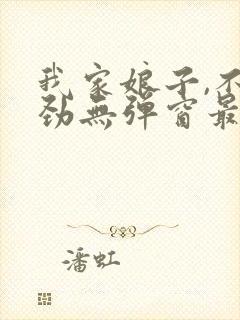 我家娘子,不
劲無彈窗最
潘虹